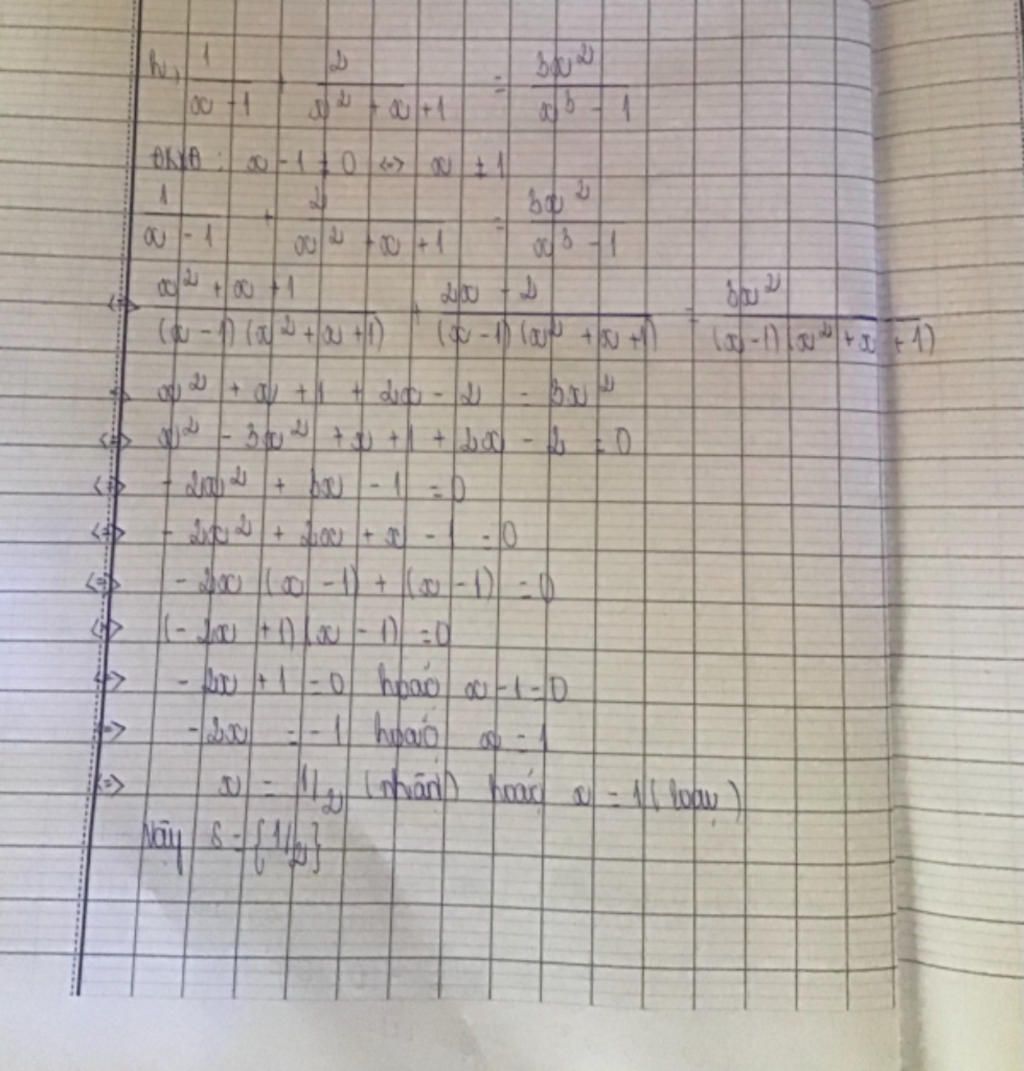 h, 1/(x - 1) + 2/(x² + x + 1) = 3x²/(x³ - 1)
ĐKXĐ : x - 1 ≠ 0 <=> x ≠ 1
1/(x - 1) + 2/(x² + x + 1) = 3x²/(x³ - 1)
<=> (x² + x + 1)/((x - 1)(x² + x + 1)) + (2x - 2)/((x - 1)(x² + x + 1)) = 3x²/((x - 1)(x² + x + 1))
=> x² + x + 1 + 2x - 2 = 3x²
<=> x² - 3x² + x + 1 + 2x - 2 = 0
<=> - 2x² + 3x - 1 = 0
<=> - 2x² + 2x + x - 1 = 0
<=> - 2x (x - 1) + (x - 1) = 0
<=> (- 2x + 1)(x - 1) = 0
<=> - 2x + 1 = 0 hoặc x - 1 = 0
<=> - 2x = - 1 hoặc x = 1
<=> x = 1/2 (nhận) hoặc x = 1 (loại)
Vậy S = {1/2}